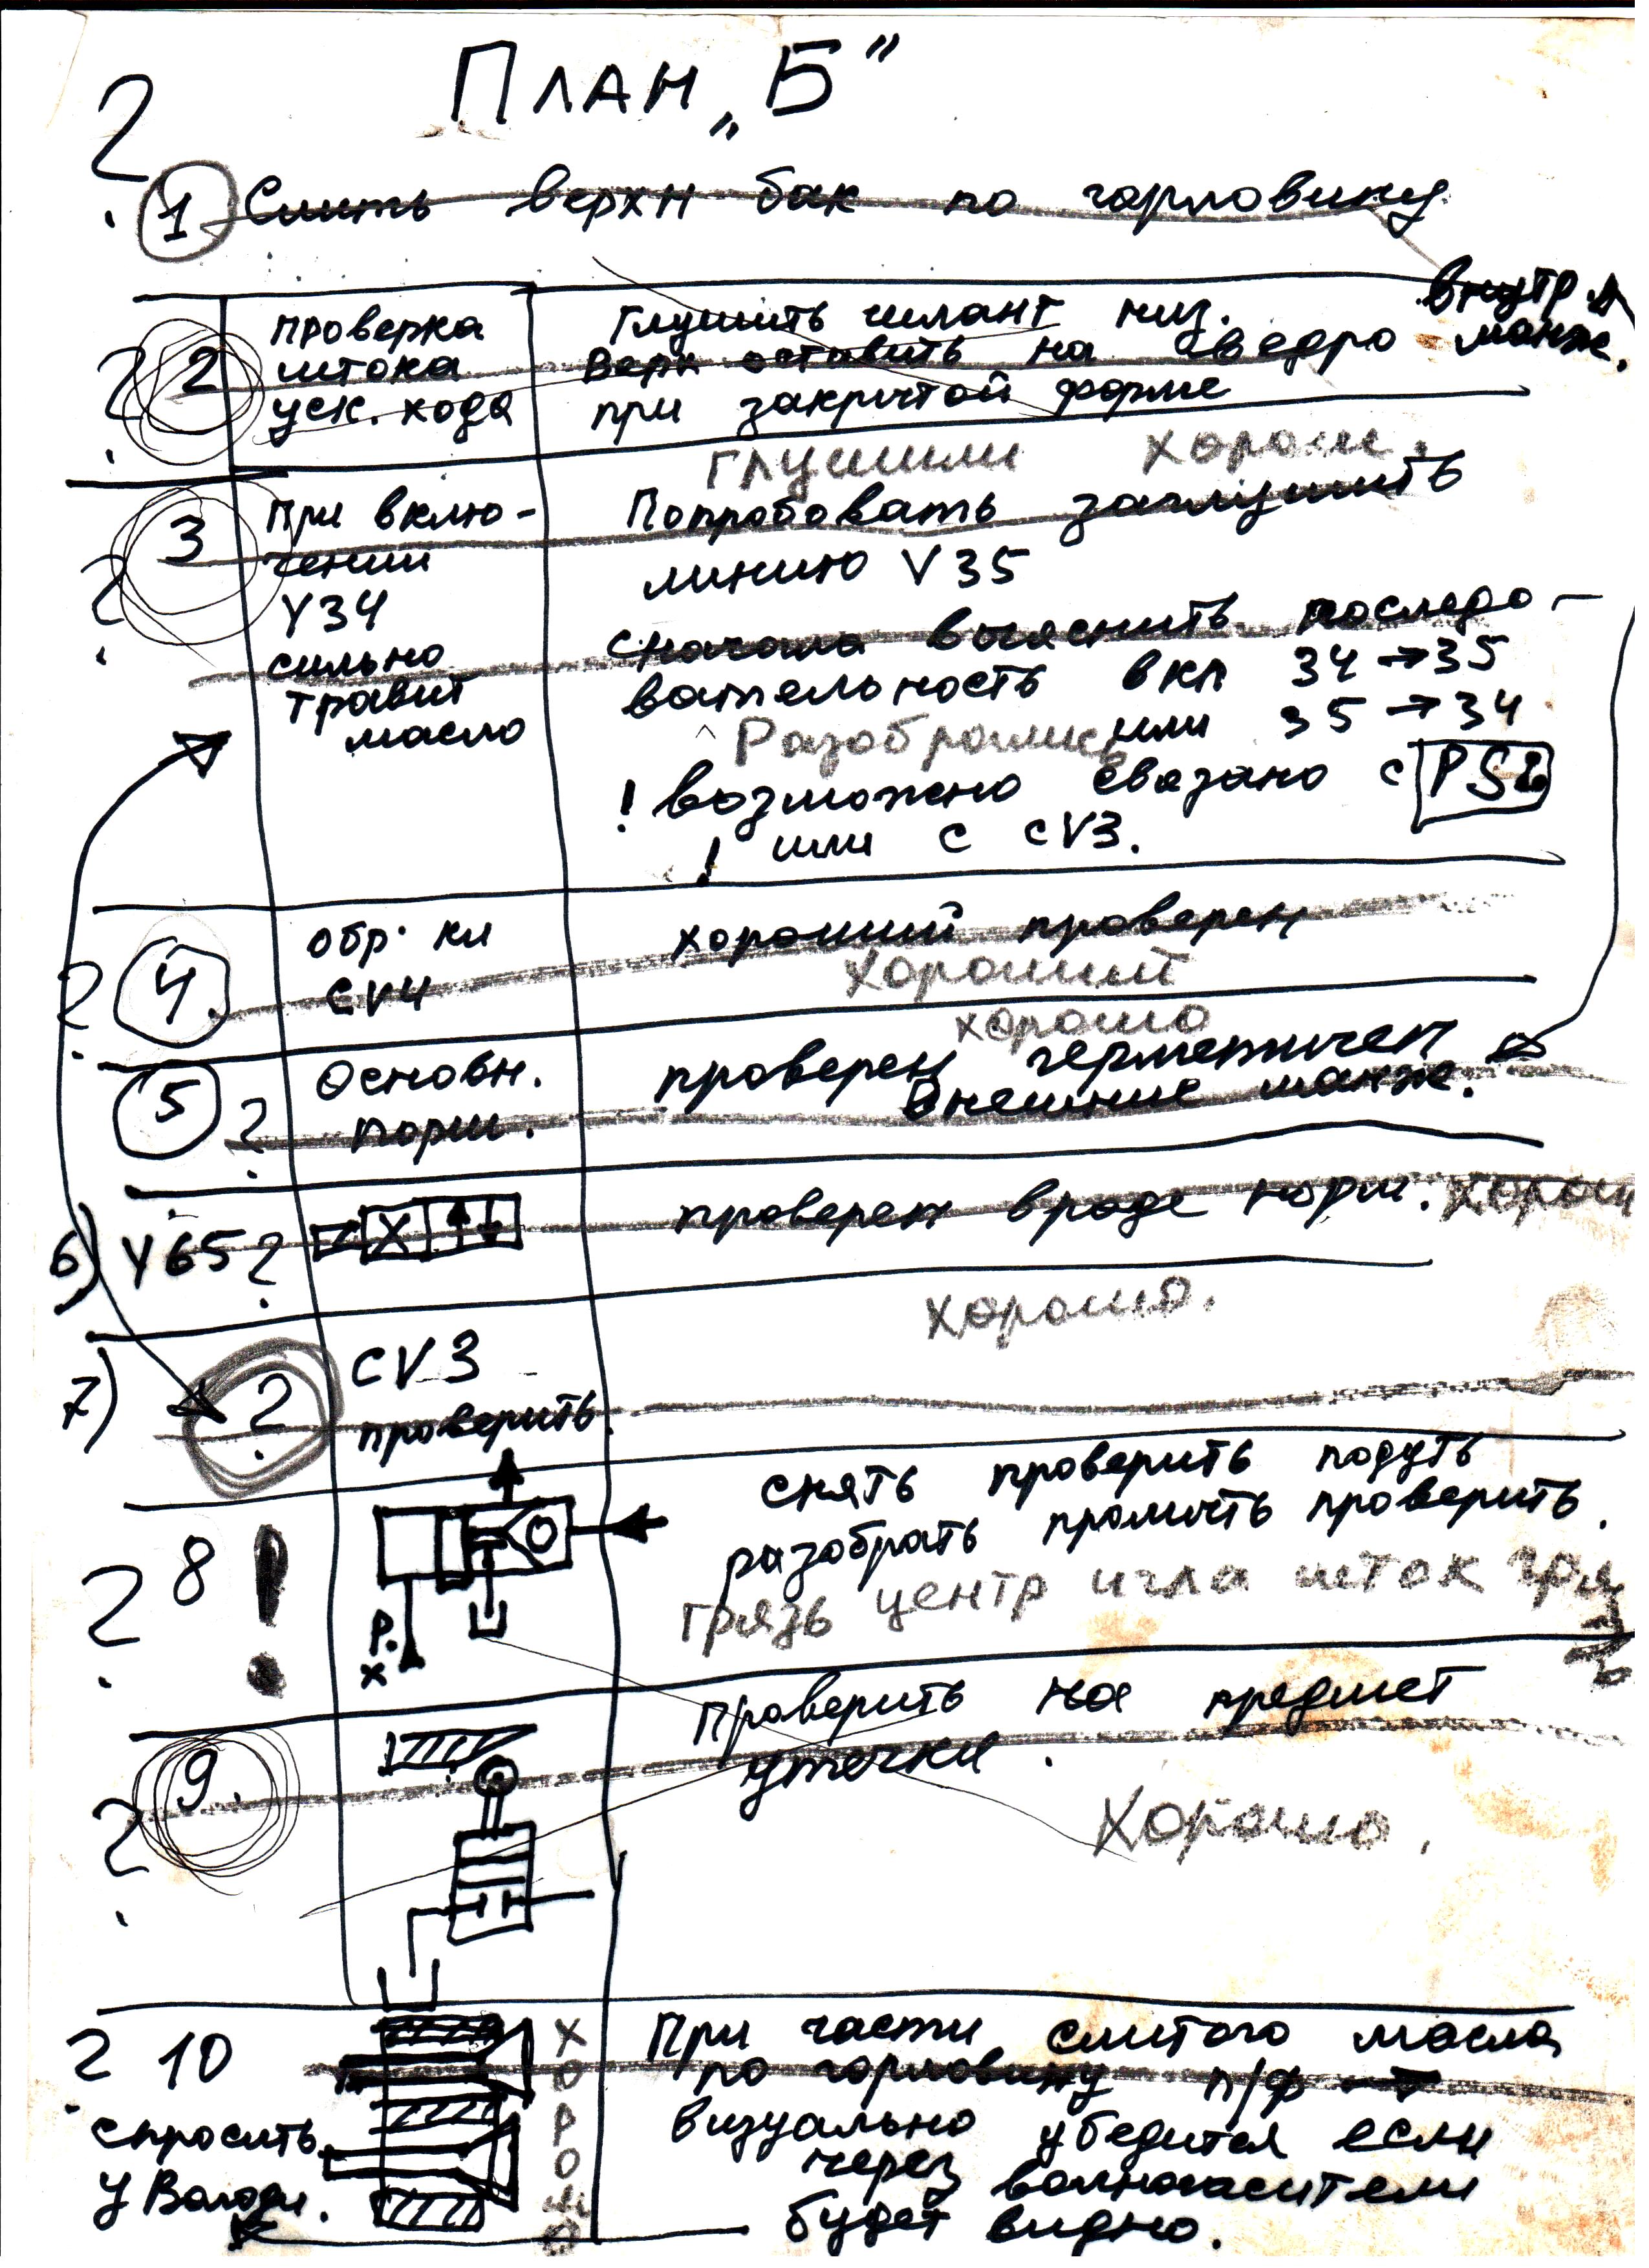 План „Б“
?
1 Слить верхн бак по горловину
внутр.
? 2 проверка глушить шланг низ.
штока верх оставить на ведро манж.
уск. хода при закрытой форме
глушили хорош.
? 3 При вклю- Попробовать заглушить
чении линию V35
Y34 сначала выяснить последо-
сильно вательность вкл 34→35
травит или 35→34
масло Разобрались
! возможно связано с PS
! или с CV3.
? 4. обр. кл хороший проверен
CV4 хороший
хорошо
5 ? Основн. проверен герметичен
порш. Внешние манж.
6) Y65 ? проверен вроде норм. хорош
хорошо.
7) ? CV3
проверить.
? 8 ! снять проверить подуть
разобрать промыть проверить.
P. грязь центр игла шток
x
? 9. Проверить на предмет
утечки.
Хорошо.
? 10 ХОРОШО При части слитого масла
по горловину п/ф
спросить визуально убедится если
у Володи. через волногасители
будет видно.